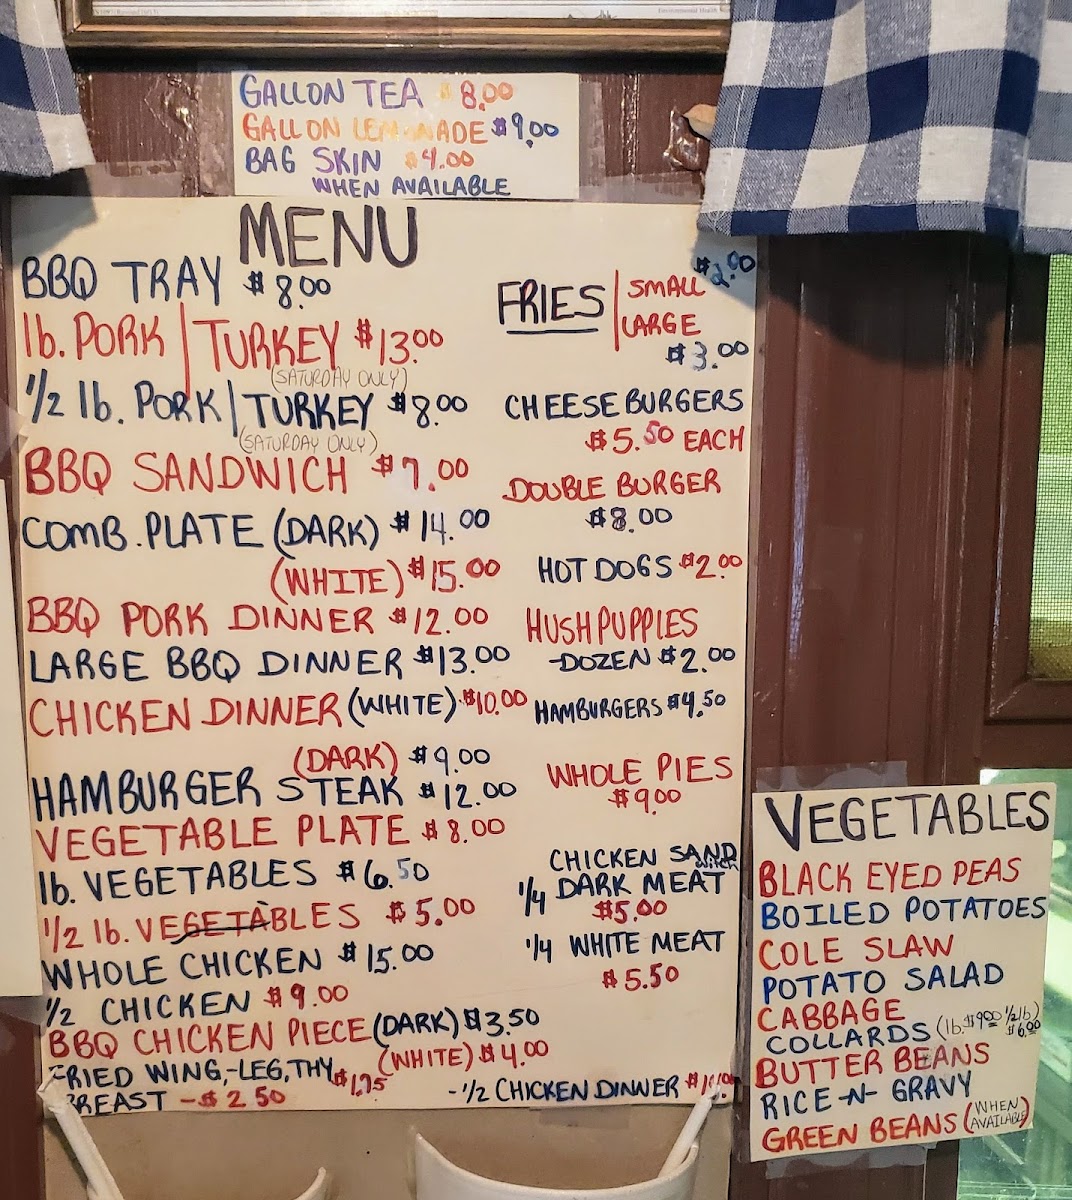 GALLON TEA $8.00
GALLON LEMONADE $9.00
BAG SKIN $4.00
WHEN AVAILABLE
MENU
BBQ TRAY $8.00
lb. PORK | TURKEY $13.00
(SATURDAY ONLY)
1/2 lb. PORK | TURKEY $8.00
(SATURDAY ONLY)
BBQ SANDWICH $7.00
COMB. PLATE (DARK) $14.00
(WHITE) $15.00
BBQ PORK DINNER $12.00
LARGE BBQ DINNER $13.00
CHICKEN DINNER (WHITE) $10.00
(DARK) $9.00
HAMBURGER STEAK $12.00
VEGETABLE PLATE $8.00
lb. VEGETABLES $6.50
1/2 lb. VEGETABLES $5.00
WHOLE CHICKEN $15.00
1/2 CHICKEN $9.00
BBQ CHICKEN PIECE (DARK) $3.50
(WHITE) $4.00
FRIED WING,-LEG,THY $1.75
BREAST -$2.50
$2.00
FRIES | SMALL
LARGE
$3.00
CHEESEBURGERS
$5.50 EACH
DOUBLE BURGER
$8.00
HOT DOGS $2.00
HUSHPUPPIES
-DOZEN $2.00
HAMBURGERS $4.50
WHOLE PIES
$9.00
CHICKEN SANDWITCH
1/4 DARK MEAT
$5.00
1/4 WHITE MEAT
$5.50
-1/2 CHICKEN DINNER
VEGETABLES
BLACK EYED PEAS
BOILED POTATOES
COLE SLAW
POTATO SALAD
CABBAGE
COLLARDS (lb. $9.00 1/2 lb) $6.00
BUTTER BEANS
RICE-N-GRAVY
GREEN BEANS (WHEN AVAILABLE)